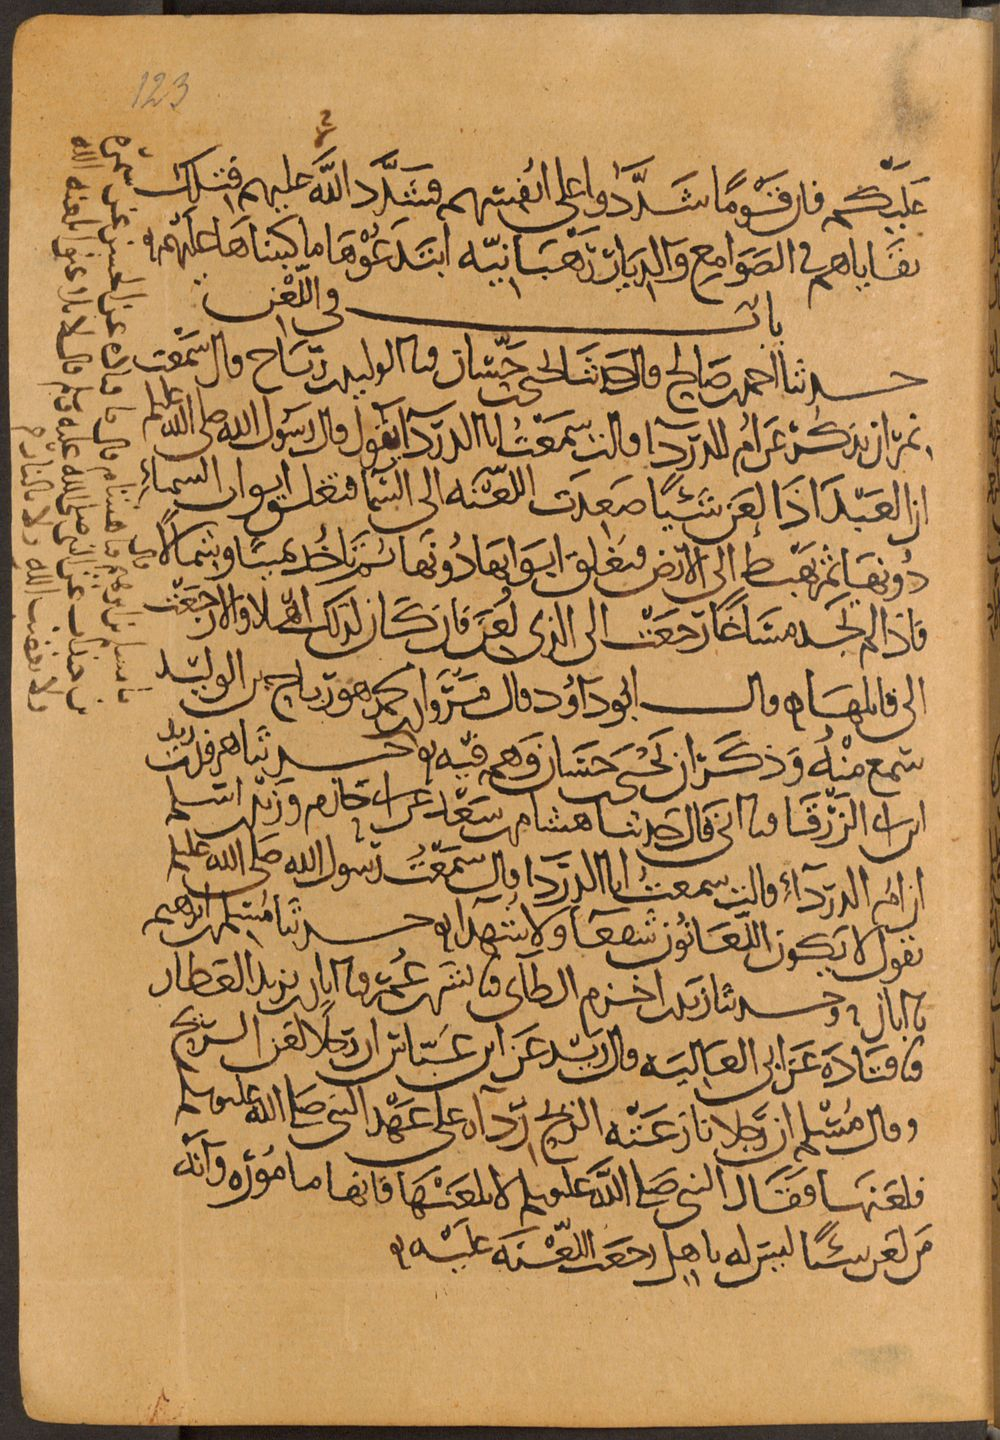 123
عليكم فان قوما شددوا على انفسهم فشدد الله عليهم فتلك
بقاياهم في الصوامع والديار رهبانية ابتدعوها ما كتبناها عليهم
باب في اللعن
حدثنا احمد بن صالح قال حدثنا يحيى بن حسان قثا الوليد بن رباح قال سمعت
نمران يذكر عن ام الدرداء قالت سمعت ابا الدرداء يقول قال رسول الله صلى الله عليه وسلم
ان العبد اذا لعن شيئا صعدت اللعنة الى السما فتغلق ابواب السماء
دونها ثم تهبط الى الارض فتغلق ابوابها دونها ثم تاخذ يمينا وشمالا
فاذا لم تجد مساغا رجعت الى الذي لعن فان كان لذلك اهلا والا رجعت
الى قائلها قال ابو داود قال مروان بن محمد هو رباح بن الوليد
سمع منه وذكر ان يحيى بن حسان وهم فيه حدثنا هرون بن زيد
ابن ابي الزرقا قثا ابي قال حدثنا هشام بن سعد عن ابي حازم وزيد بن اسلم
ان ام الدرداء قالت سمعت ابا الدرداء قال سمعت رسول الله صلى الله عليه وسلم
يقول لا يكون اللعانون شفعا ولا شهدا حدثنا مسلم بن ابرهيم
ثا ابان وحدثنا زيد بن اخزم الطائي قثا بشر بن عمر قثا ابان بن يزيد العطار
قثا قتادة عن ابي العالية قال زيد عن ابن عباس ان رجلا لعن الريح
وقال مسلم ان رجلا نازعته الريح رداه على عهد النبي صلى الله عليه وسلم
فلعنها فقال النبي صلى الله عليه وسلم لا تلعنها فانها مامورة وانه
من لعن شيئا ليس له باهل رجعت اللعنة عليه
ثا مسلم بن ابرهيم ثنا هشام قال ثنا قتادة عن الحسن عن سمرة
بن جندب عن النبي صلى الله عليه وسلم قال لا تلاعنوا بلعنة الله
ولا بغضب الله ولا بالنار